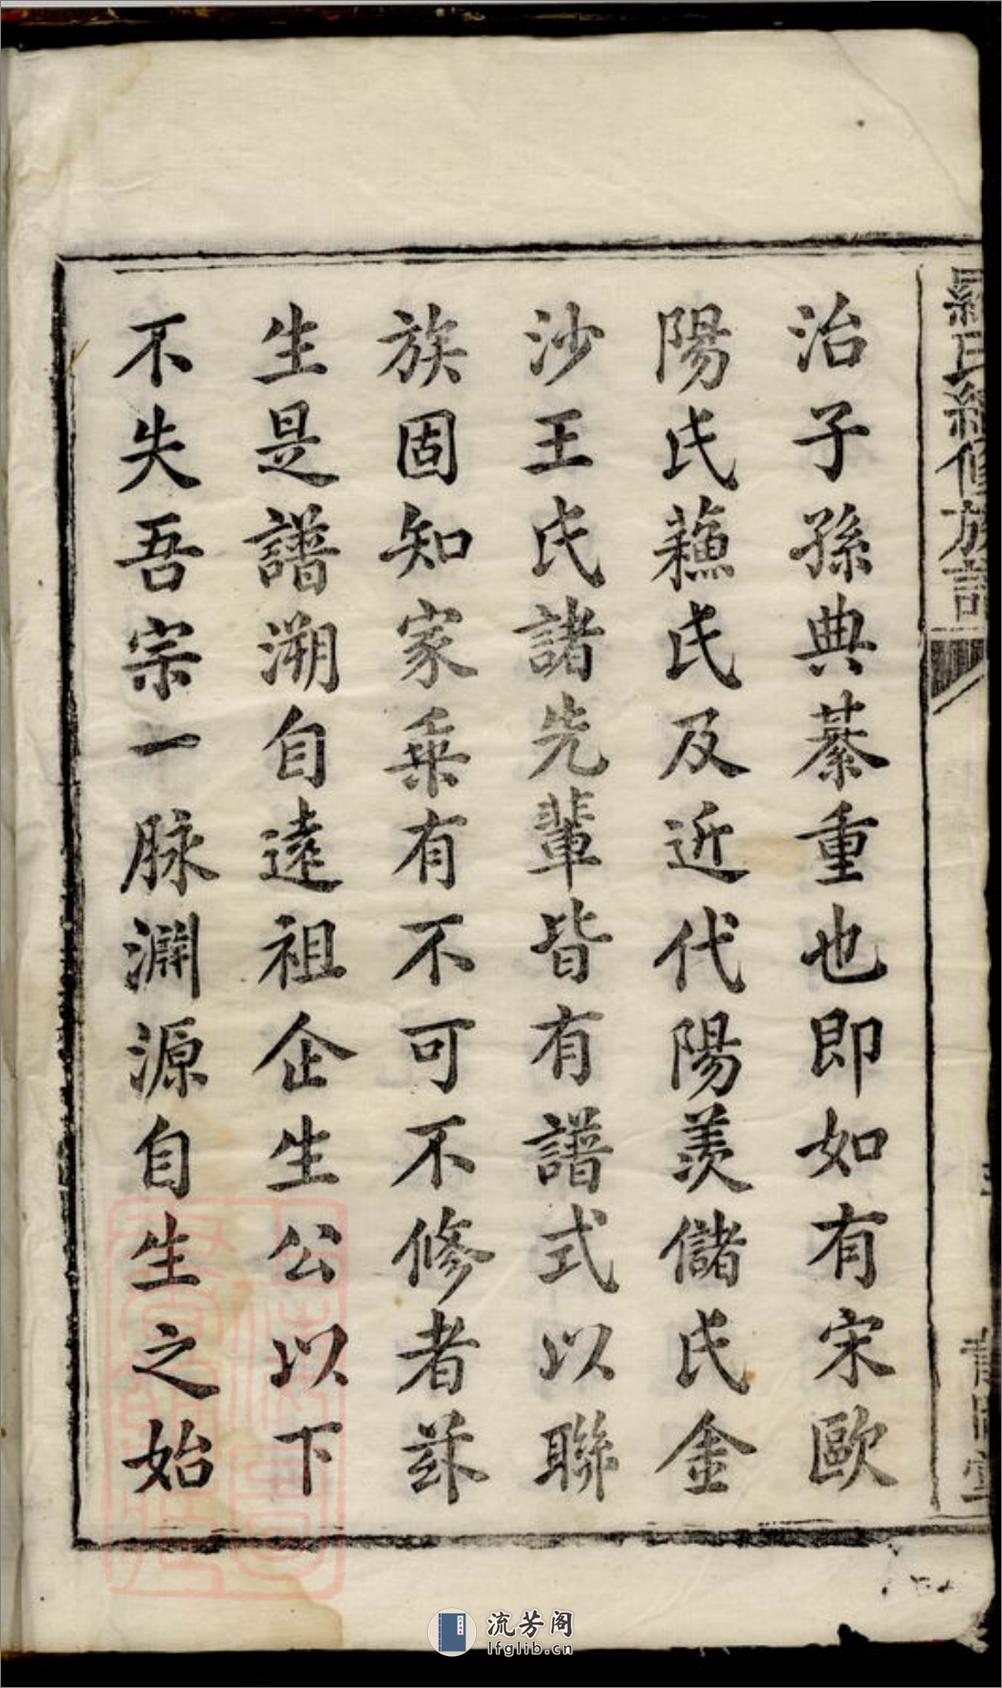 羅氏續修族譜
治子孫典綦重也即如有宋歐
陽氏蘓氏及近代陽羨儲氏金
沙王氏諸先輩皆有譜式以聯
族固知家乗有不可不修者兹
生是譜溯自遠祖企生公以下
不失吾宗一脉淵源自生之始
流芳阁
lfglib.cn